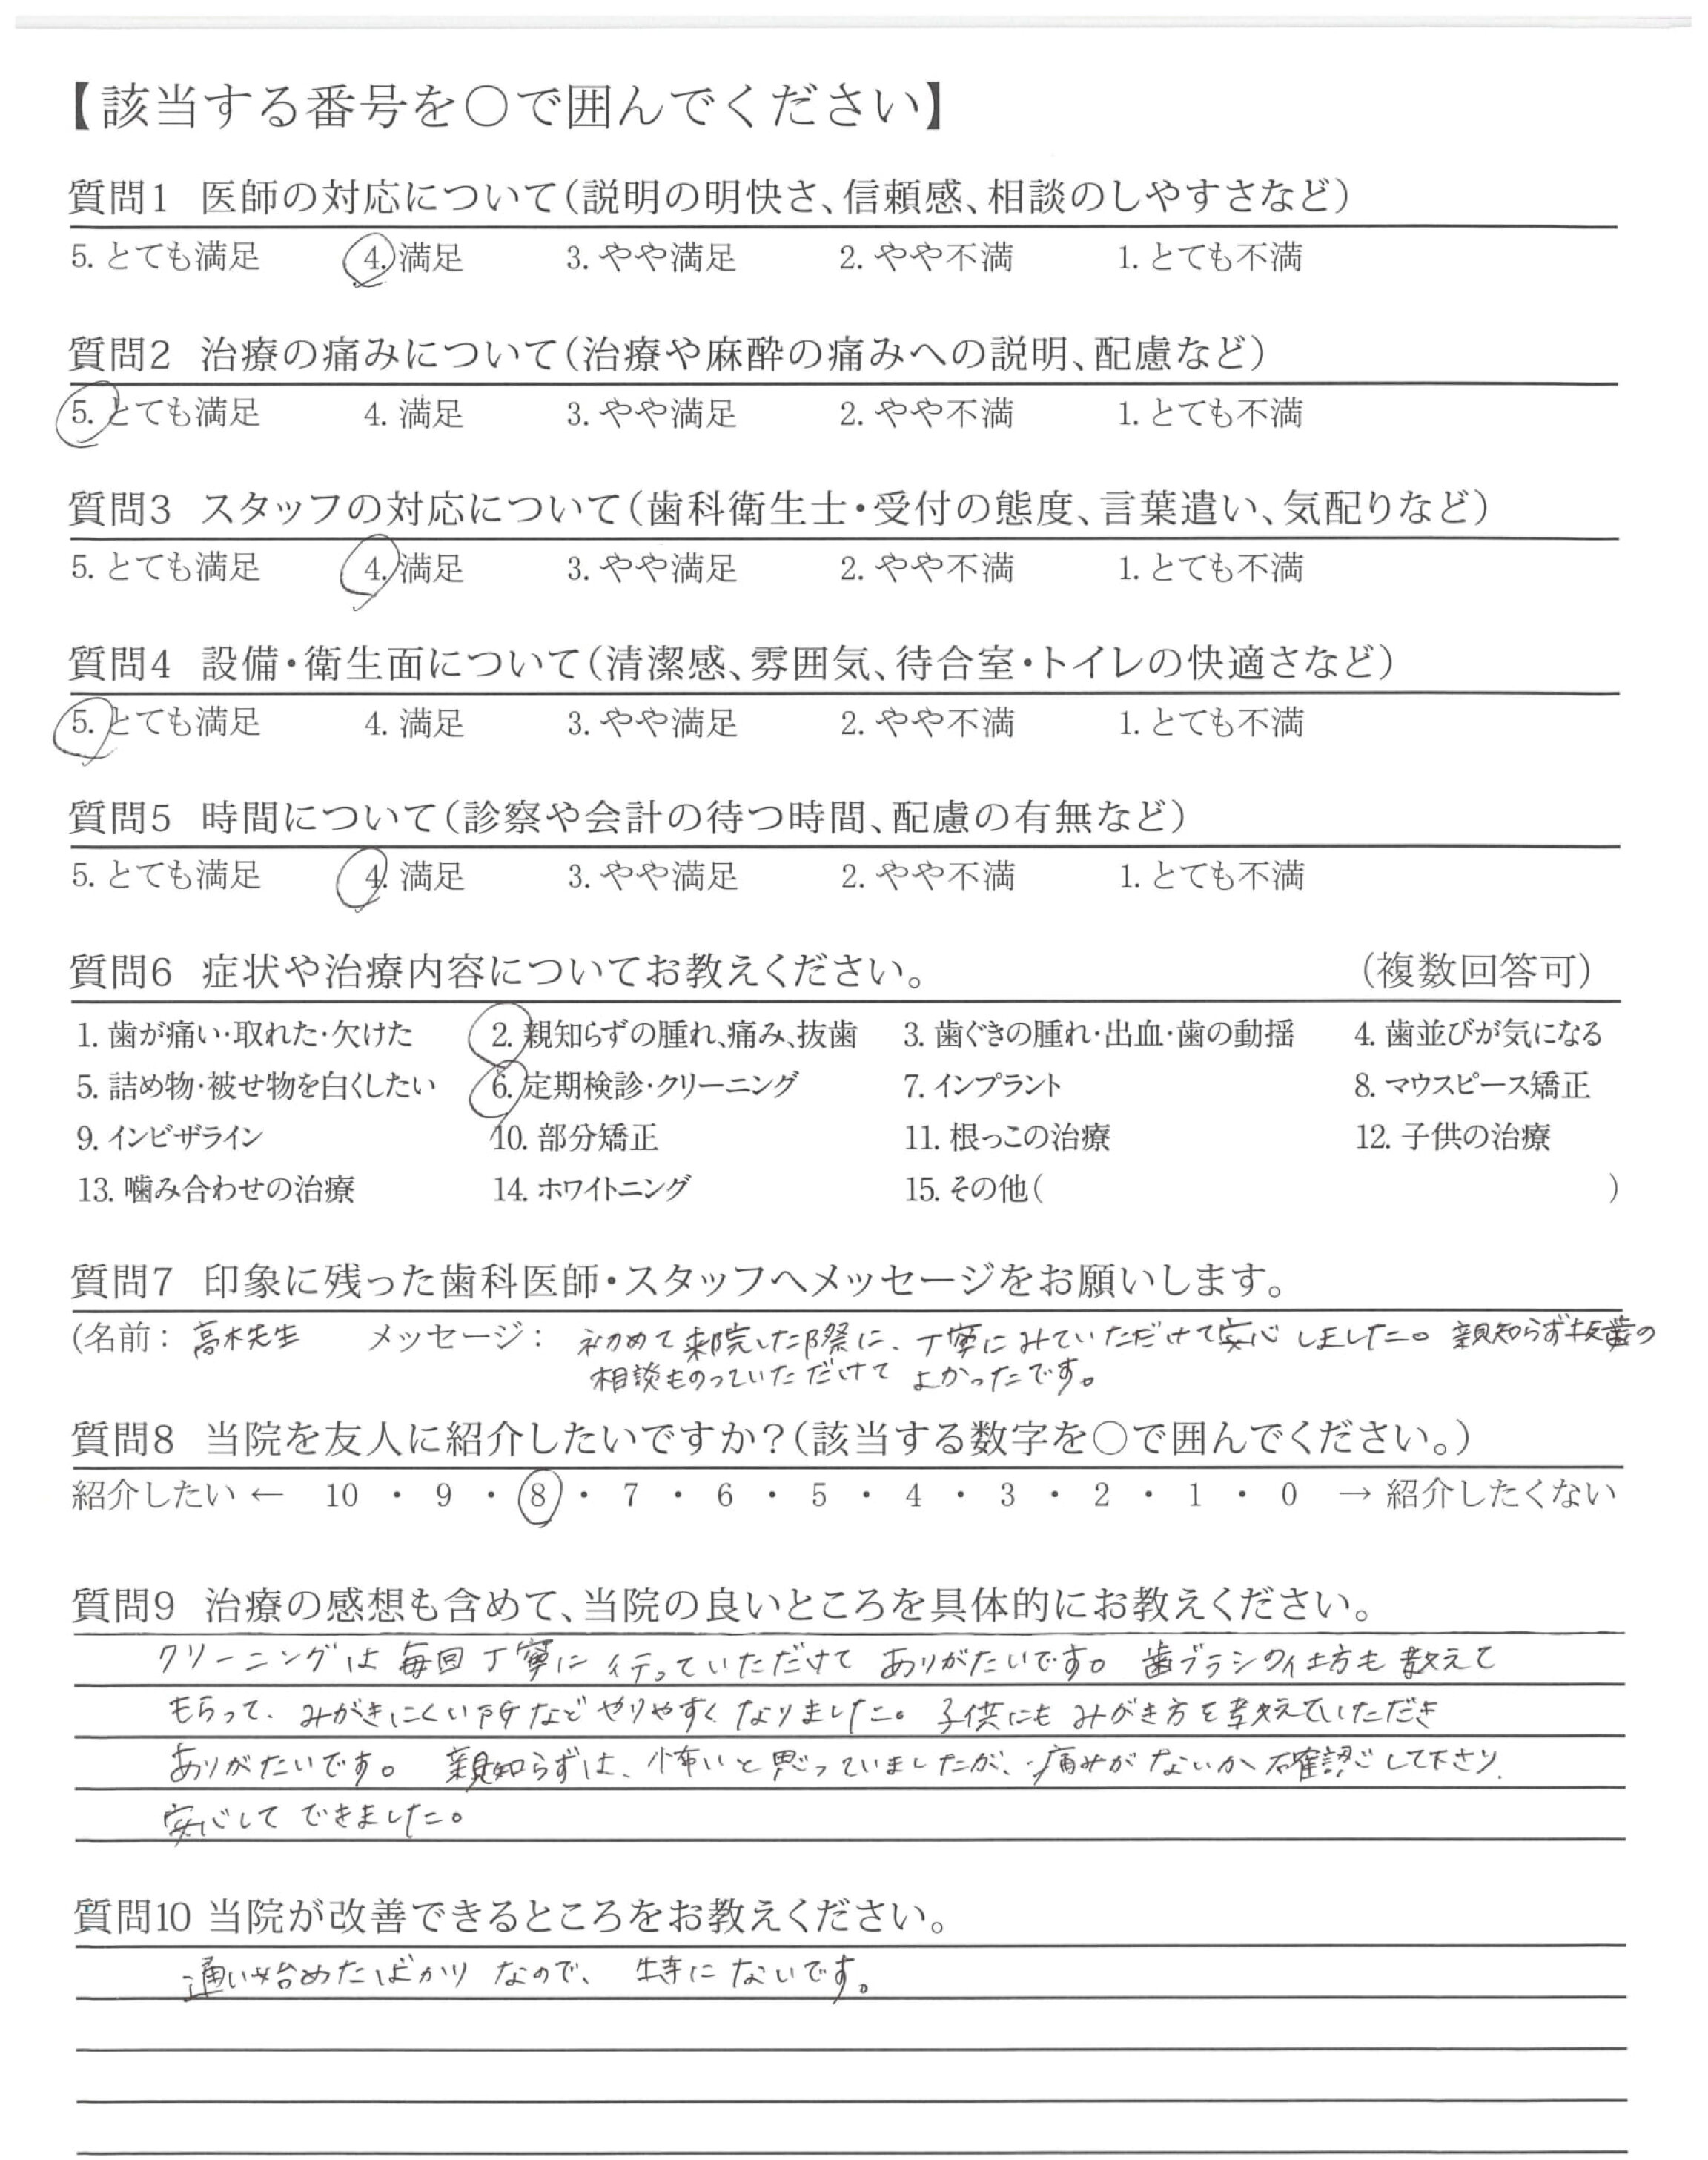 【該当する番号を○で囲んでください】
質問1 医師の対応について(説明の明快さ、信頼感、相談のしやすさなど)
5. とても満足 4. 満足 3. やや満足 2. やや不満 1. とても不満
質問2 治療の痛みについて(治療や麻酔の痛みへの説明、配慮など)
5. とても満足 4. 満足 3. やや満足 2. やや不満 1. とても不満
質問3 スタッフの対応について(歯科衛生士・受付の態度、言葉遣い、気配りなど)
5. とても満足 4. 満足 3. やや満足 2. やや不満 1. とても不満
質問4 設備・衛生面について(清潔感、雰囲気、待合室・トイレの快適さなど)
5. とても満足 4. 満足 3. やや満足 2. やや不満 1. とても不満
質問5 時間について(診察や会計の待つ時間、配慮の有無など)
5. とても満足 4. 満足 3. やや満足 2. やや不満 1. とても不満
質問6 症状や治療内容についてお教えください。 (複数回答可)
1. 歯が痛い・取れた・欠けた 2. 親知らずの腫れ、痛み、抜歯 3. 歯ぐきの腫れ・出血・歯の動揺 4. 歯並びが気になる
5. 詰め物・被せ物を白くしたい 6. 定期検診・クリーニング 7. インプラント 8. マウスピース矯正
9. インビザライン 10. 部分矯正 11. 根っこの治療 12. 子供の治療
13. 噛み合わせの治療 14. ホワイトニング 15. その他( )
質問7 印象に残った歯科医師・スタッフへメッセージをお願いします。
(名前: 高木先生 メッセージ: 初めて来院した際に、丁寧にみていただけて安心しました。親知らず抜歯の
相談ものっていただけてよかったです。
質問8 当院を友人に紹介したいですか?(該当する数字を○で囲んでください。)
紹介したい ← 10 ・ 9 ・ 8 ・ 7 ・ 6 ・ 5 ・ 4 ・ 3 ・ 2 ・ 1 ・ 0 → 紹介したくない
質問9 治療の感想も含めて、当院の良いところを具体的にお教えください。
クリーニングは毎回丁寧に行っていただけてありがたいです。歯ブラシの仕方も教えて
もらって、みがきにくい所などやりやすくなりました。子供にもみがき方を教えていただき
ありがたいです。親知らずは、怖いと思っていましたが、痛みがないか確認して下さり、
安心してできました。
質問10 当院が改善できるところをお教えください。
通い始めたばかりなので、特にないです。